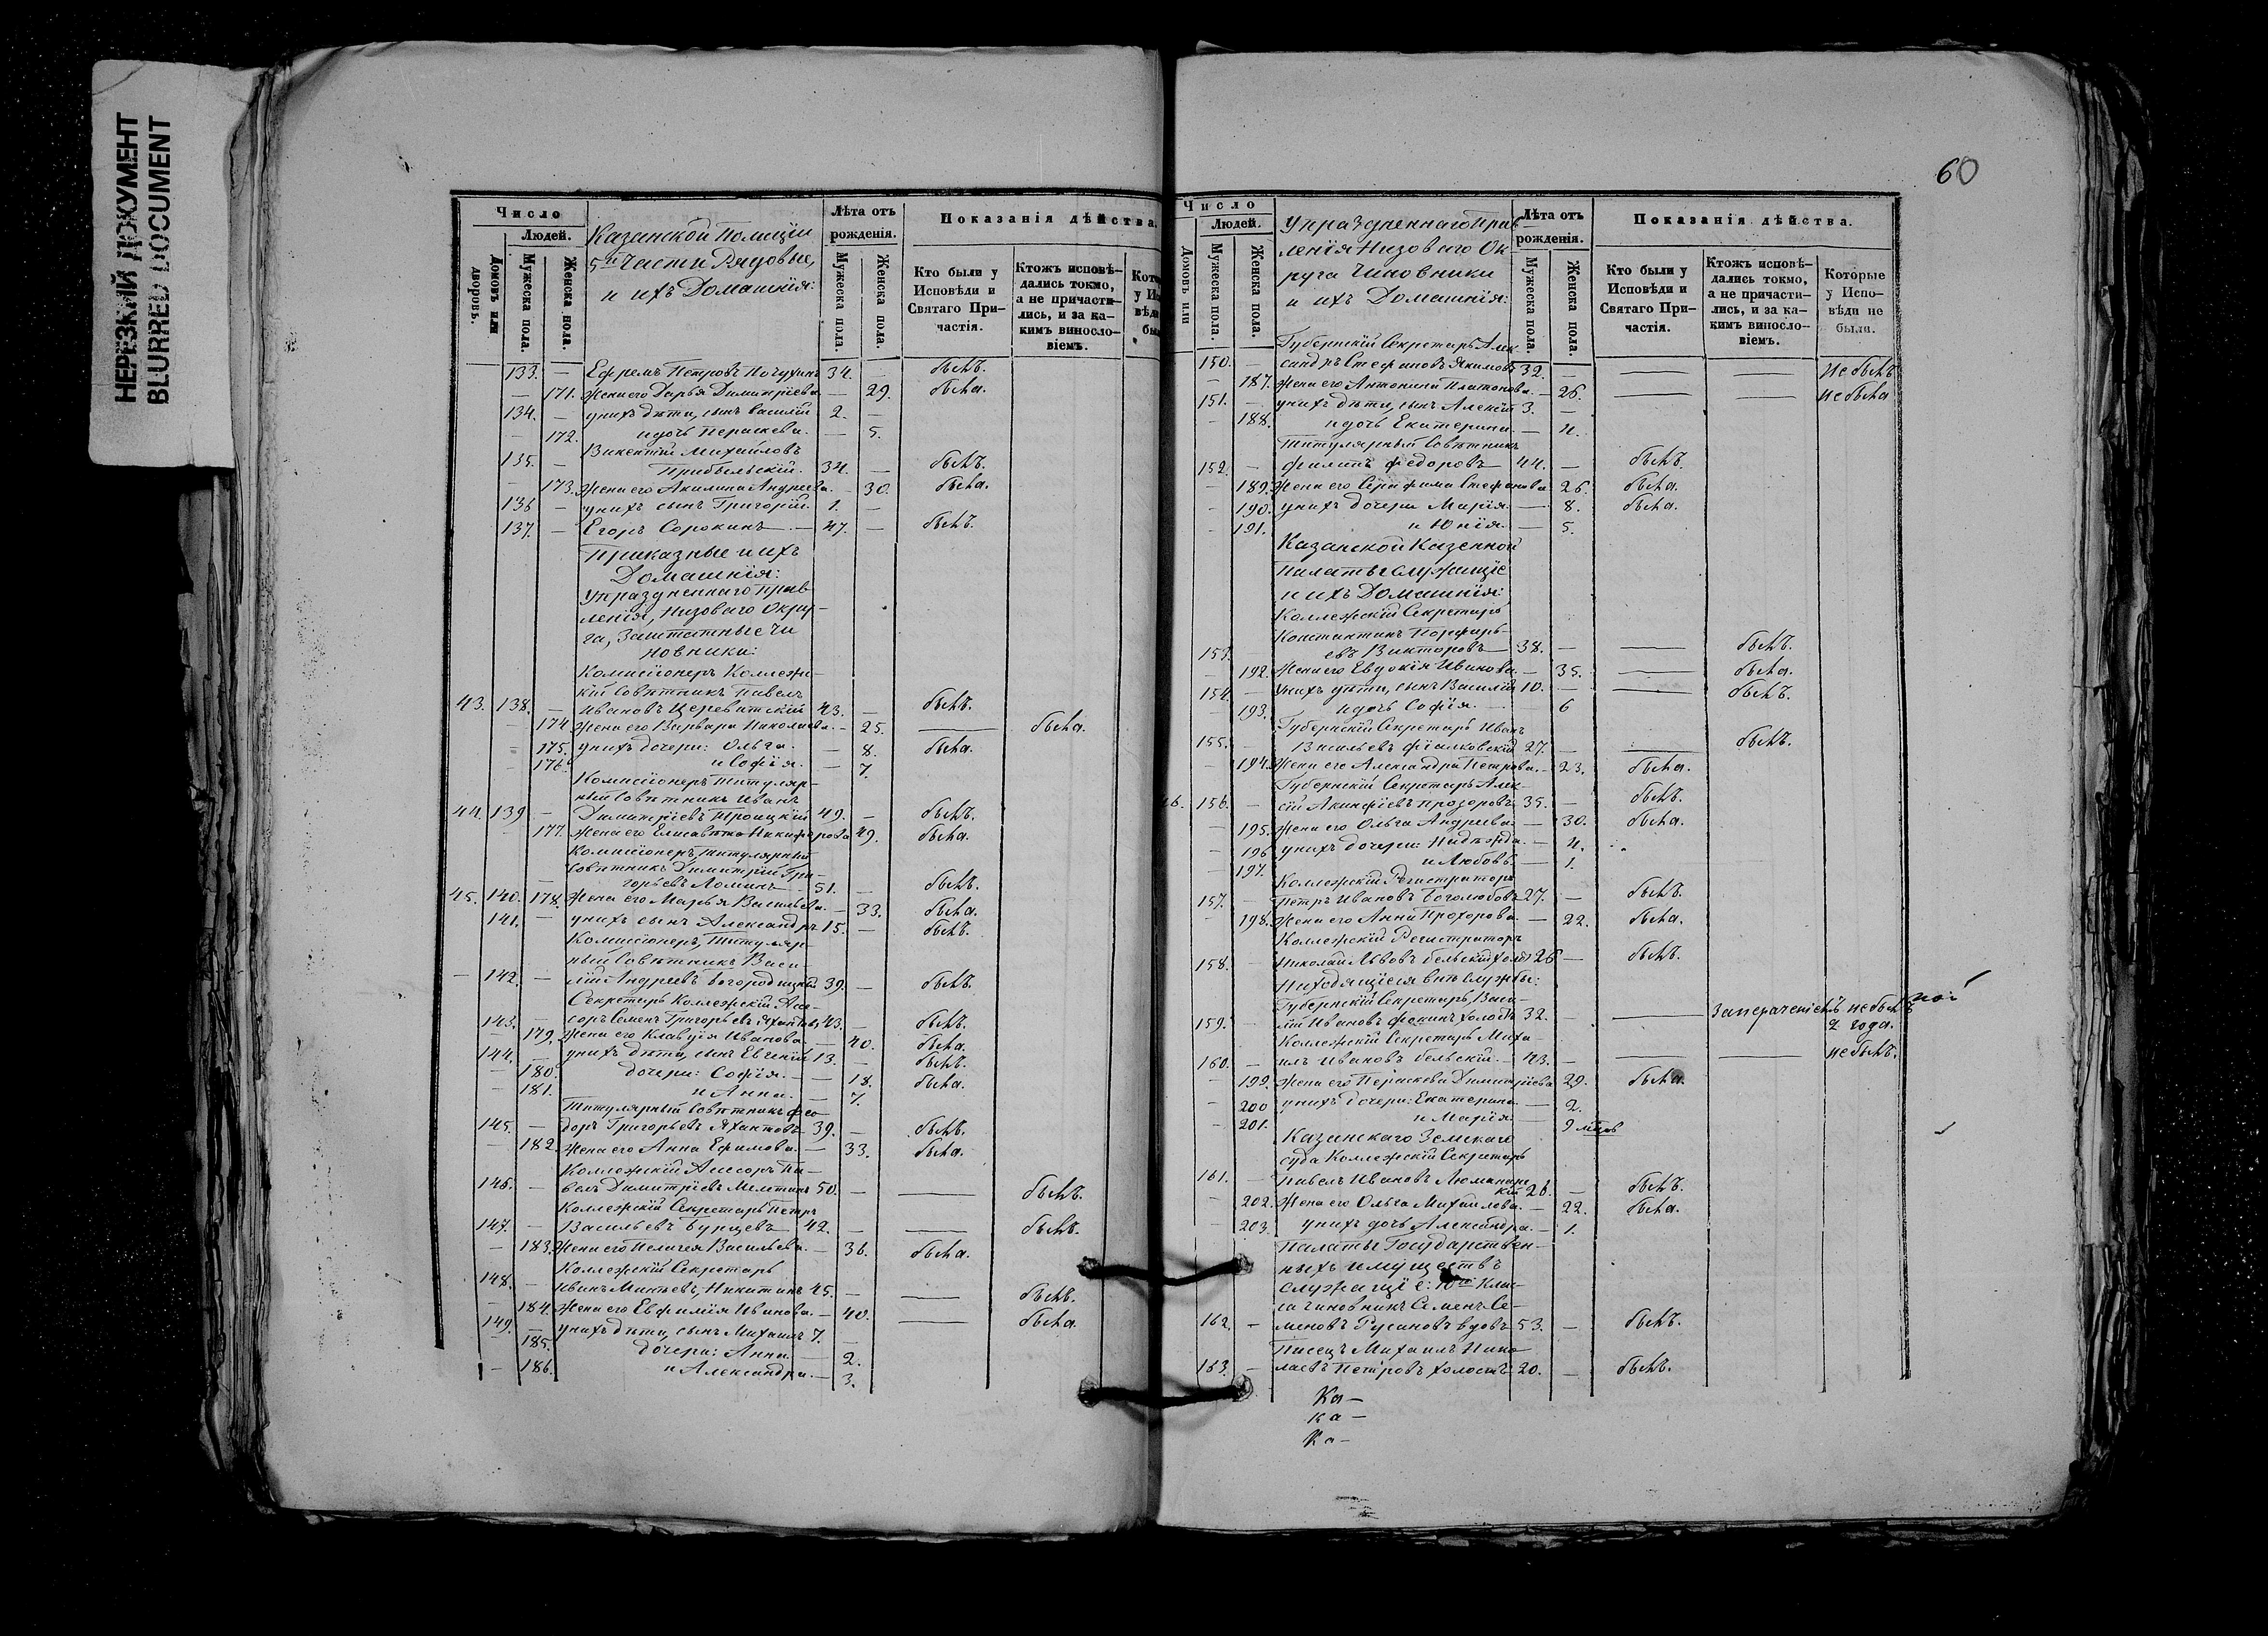 НЕРЕЗКИЙ ДОКУМЕНТ
BLURRED DOCUMENT
Число
Людей.
Домовъ или дворовъ.
Мужеска пола.
Женска пола.
Казанской Полиціи
5й Части Рядовые,
и ихъ Домашнія:
Лѣта отъ рожденія.
Мужеска пола.
Женска пола.
Показанія дѣйства.
Кто были у Исповѣди и Святаго Причастія.
Ктожъ исповѣдались токмо, а не причастились, и за какимъ винословіемъ.
133. — Ефремъ Петровъ 34. — былъ.
— 171. Жена его Дарья Димитріева — 29. была.
134. — у нихъ дѣти, сынъ Василій 2. —
— 172. и дочь Параскева. — 5.
Викентій Михайловъ
135. — Прибыльскій. 34. — былъ.
— 173. Жена его Акилина Андреева. — 30. была.
136 — у нихъ сынъ Григорій. 1. —
137. — Егоръ Сорокинъ — 47. — былъ.
Приказные и ихъ
Домашнія:
Упраздненнаго Прав-
ленія, Низоваго Окру-
га, Заштатные Чи
новники:
Комисіонеръ Коллеж-
кій Совѣтникъ Павелъ
43. 138. — Ивановъ Церевитскій 43. — былъ.
— 174. Жена его Варвара Николаева. — 25. — была.
— 175. у нихъ дочери: Ольга. — 8. была.
— 176. и Софія. — 7.
Комисіонеръ Титуляр-
ный Совѣтникъ Иванъ
44. 139 — Димитріевъ Троицкій 49. — былъ.
177. Жена его Елисавета Никифорова 49. была.
Комисіонеръ, Титулярный
Совѣтникъ Димитрій Гри-
горьевъ Ломинъ — 51. — былъ.
45. 140. 178. Жена его Марья Васильева. — 33. была.
141. — у нихъ сынъ Александръ 15. — былъ.
Комисіонеръ, Титуляр-
ный Совѣтникъ Васи-
— 142. — лій Андреевъ Богородицкій 39. — былъ.
Секретарь Коллежскій Асе-
143. — соръ Семенъ Григорьевъ Яхантовъ 43. — былъ.
— 179. Жена его Клавдія Иванова — 40. была.
144. — у нихъ дѣти, сынъ Евгеній 13. былъ.
— 180. дочери: Софія. — 18. была.
— 181. и Анна. — 7.
Титулярный Совѣтникъ Фео-
145. — доръ Григорьевъ Яхантовъ 39. — былъ.
— 182. Жена его Анна Ефимова. — 33. была.
Коллежскій Асессоръ Па-
146. — велъ Димитріевъ Мелетинъ 50. — — былъ.
Коллежскій Секретарь Петръ
147. — Васильевъ Бурцевъ 42. — — былъ.
— 183. Жена его Пелагея Васильева. — 36. была.
Коллежскій Секретарь
148. — Иванъ Матвевъ Никитинъ 45. — — былъ.
— 184. Жена его Евфимія Иванова. — 40. — была.
149. — у нихъ дѣти, сынъ Михаилъ 7. —
— 185. дочери: Анна — 2.
— 186. и Александра. — 3.
60
Число
Людей.
Домовъ или
Мужеска пола.
Женска пола.
Упраздненнаго Прав-
ленія Низоваго Ок-
руга Чиновники
и ихъ Домашнія:
Лѣта отъ рожденія.
Мужеска пола.
Женска пола.
Показанія дѣйства.
Кто были у Исповѣди и Святаго Причастія.
Ктожъ исповѣдались токмо, а не причастились, и за какимъ винословіемъ.
Которые у Исповѣди не были.
Губернскій Секретарь Алек-
150. — сандръ Стефановъ Якимовъ 32. — — — Не былъ
— 187. Жена его Антонина Платонова. — 26. — — Не была
151. — у нихъ дѣти, сынъ Алексій 3. —
— 188. и дочь Екатерина. — 4.
Титулярный Совѣтникъ
152. — Филипъ Федоровъ — 44. — былъ.
— 189. Жена его Серафима Стефанова 26. была.
— 190. у нихъ дочери Марія. — 8. была.
— 191. и Юнія. — 5.
Казанской Казенной
Палаты Служащіе
и ихъ Домашнія:
Коллежскій Секретарь
Константинъ Порфирь-
153. — евъ Викторовъ — 38. — — былъ.
— 192. Жена его Евдокія Иванова. — 35. — была.
154. — у нихъ дѣти, сынъ Василій 10. — — былъ.
— 193. и дочь Софія. — 6
Губернскій Секретарь Иванъ
155. — Васильевъ Фіалковскій 27. — — былъ.
— 194. Жена его Александра Петрова. — 23. была.
Губернскій Секретарь Алек-
46. 156. — сій Акинфіевъ Прозоровъ 35. — былъ.
— 195. Жена его Ольга Андреева — 30. была.
— 196 у нихъ дочери: Надежда. — 4.
— 197. и Любовь. — 1.
Коллежскій Регистраторъ
157. — Петръ Ивановъ Боголюбовъ 27. — былъ.
— 198. Жена его Анна Прохорова. — 22. была.
Коллежскій Регистраторъ
158. — Николай Львовъ Бельскій 26 — былъ.
Находящіеся внѣ службы:
Губернскій Секретарь, Васи-
159. — лій Ивановъ Фокинъ холостъ 32. — — не былъ
2 года.
Коллежскій Секретарь Миха-
160. — илъ Ивановъ Бельскій. — 43. — — — не былъ.
— 199. Жена его Параскева Димитріева 29. была.
— 200 у нихъ дочери: Екатерина — 2.
— 201. и Марія — 9 мцов
Казанскаго Земскаго
суда Коллежскій Секретарь
161. — Павелъ Ивановъ 26. — былъ.
— 202. Жена его Ольга Михайлова. — 22. была.
— 203. у нихъ дочь Александра. — 1.
Палаты Государствен-
ныхъ имуществъ
служащіе: 10го Клас-
са чиновникъ Семенъ Се-
162. — меновъ Русановъ вдовъ 53. — былъ.
Писецъ Михаилъ Нико-
163. — лаевъ Петровъ холостъ 20. — былъ.
Ка-
ка-
Ка-